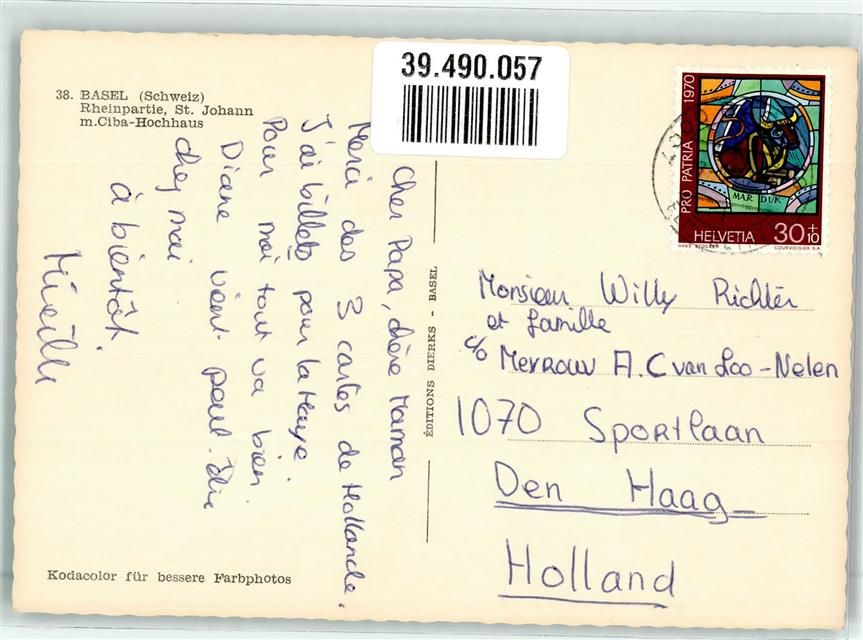 39.490.057
38. BASEL (Schweiz)
Rheinpartie, St. Johann
m.Ciba-Hochhaus
Cher Papa, chère Maman
Merci des 3 cartes de Hollande.
J'ai billets pour la Haye.
Pour moi tout va bien.
Diane vient peut-être
chez moi
à bientôt.
Mireille
Kodacolor für bessere Farbphotos
ÉDITIONS DIERKS - BASEL
PRO PATRIA 1970
MAR DUK
HELVETIA 30+10
COURVOISIER S.A.
Monsieur Willy Richter
et famille
c/o Mevrouw A.C van Loo-Nelen
1070 Sportlaan
Den Haag
Holland